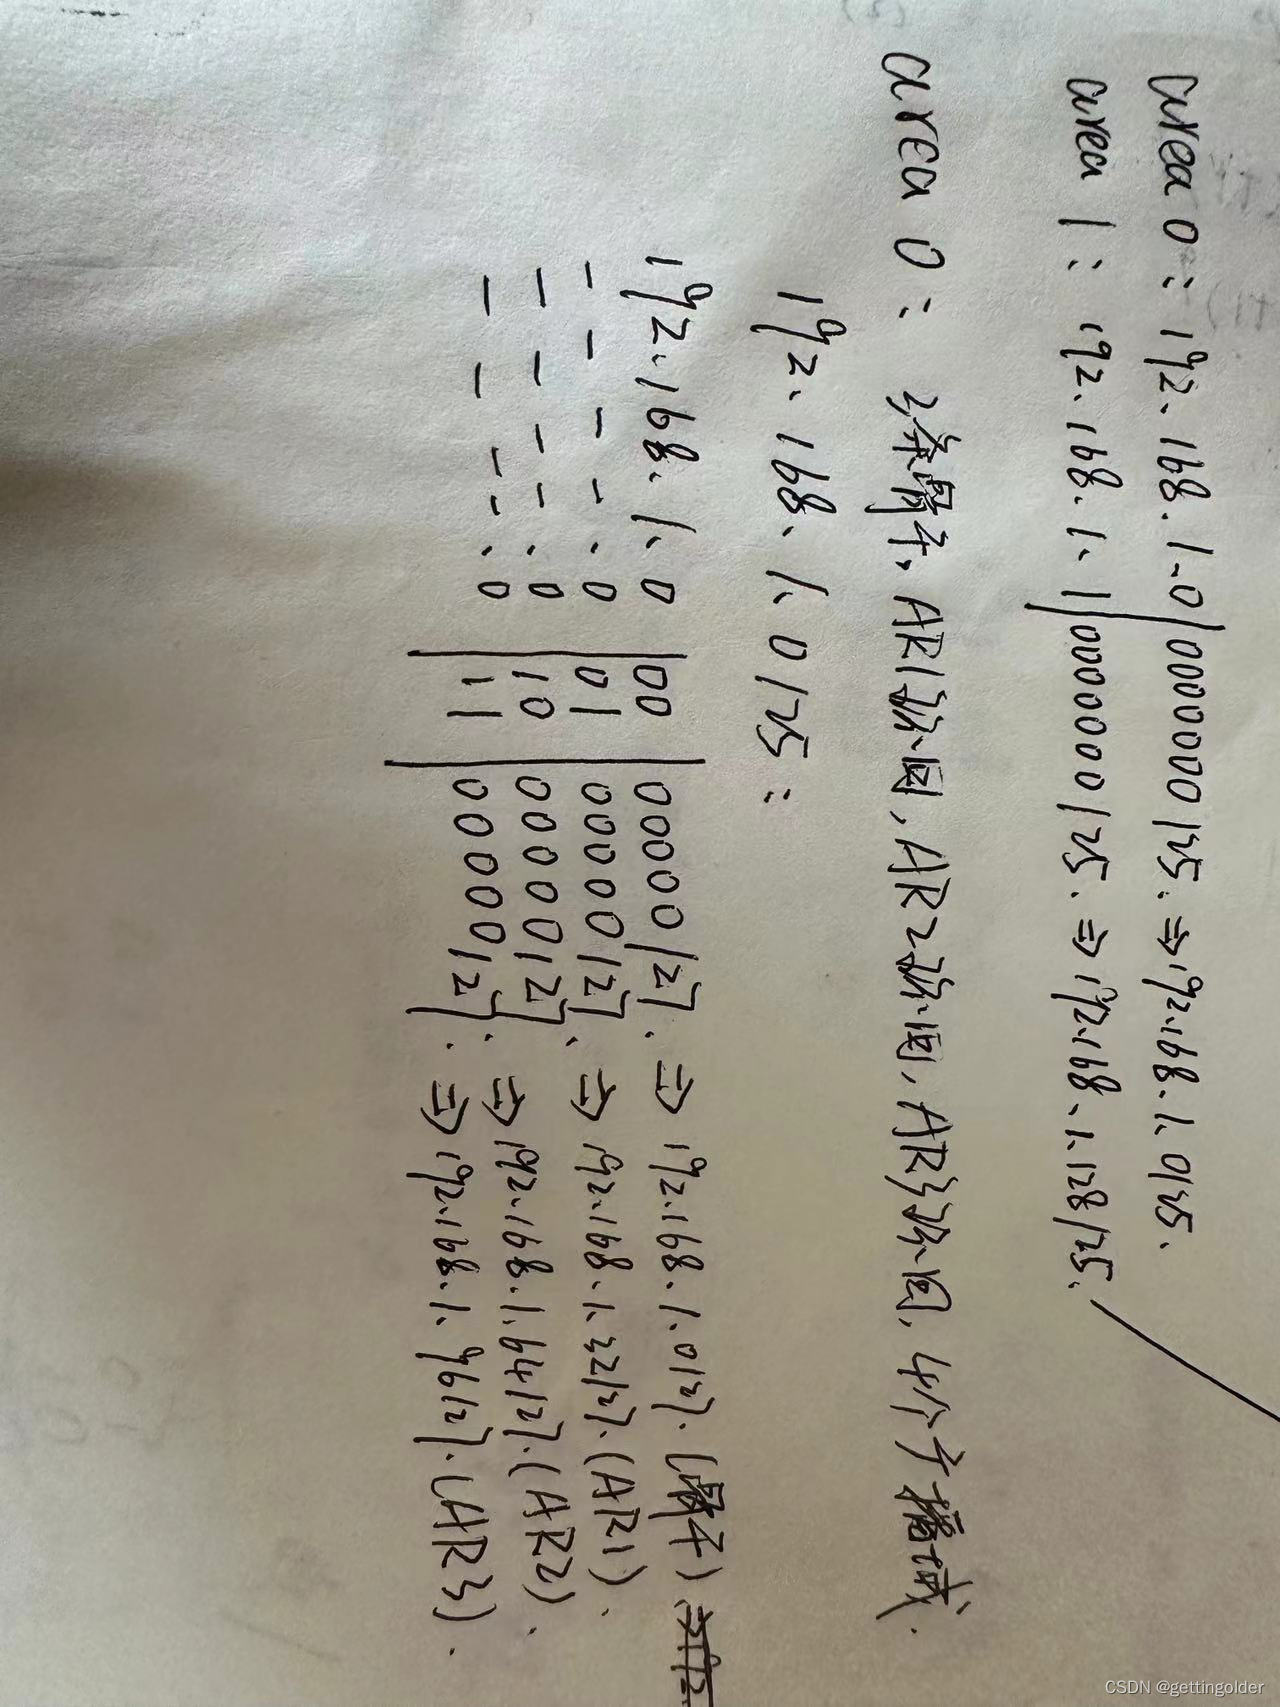 area 0: 192.168.1.0|0000000/25. ⇒ 192.168.1.0/25.
area 1: 192.168.1.1|0000000/25. ⇒ 192.168.1.128/25.
area 0: 3条骨干, AR1环回, AR2环回, AR3环回, 4个子播域.
192.168.1.0/25:
192.168.1.0|00|00000/27. ⇒ 192.168.1.0/27. (骨干)
— — — — .0|01|00000/27. ⇒ 192.168.1.32/27. (AR1).
— — — — .0|10|00000/27. ⇒ 192.168.1.64/27. (AR2).
— — — — .0|11|00000/27. ⇒ 192.168.1.96/27. (AR3).
CSDN @gettingolder